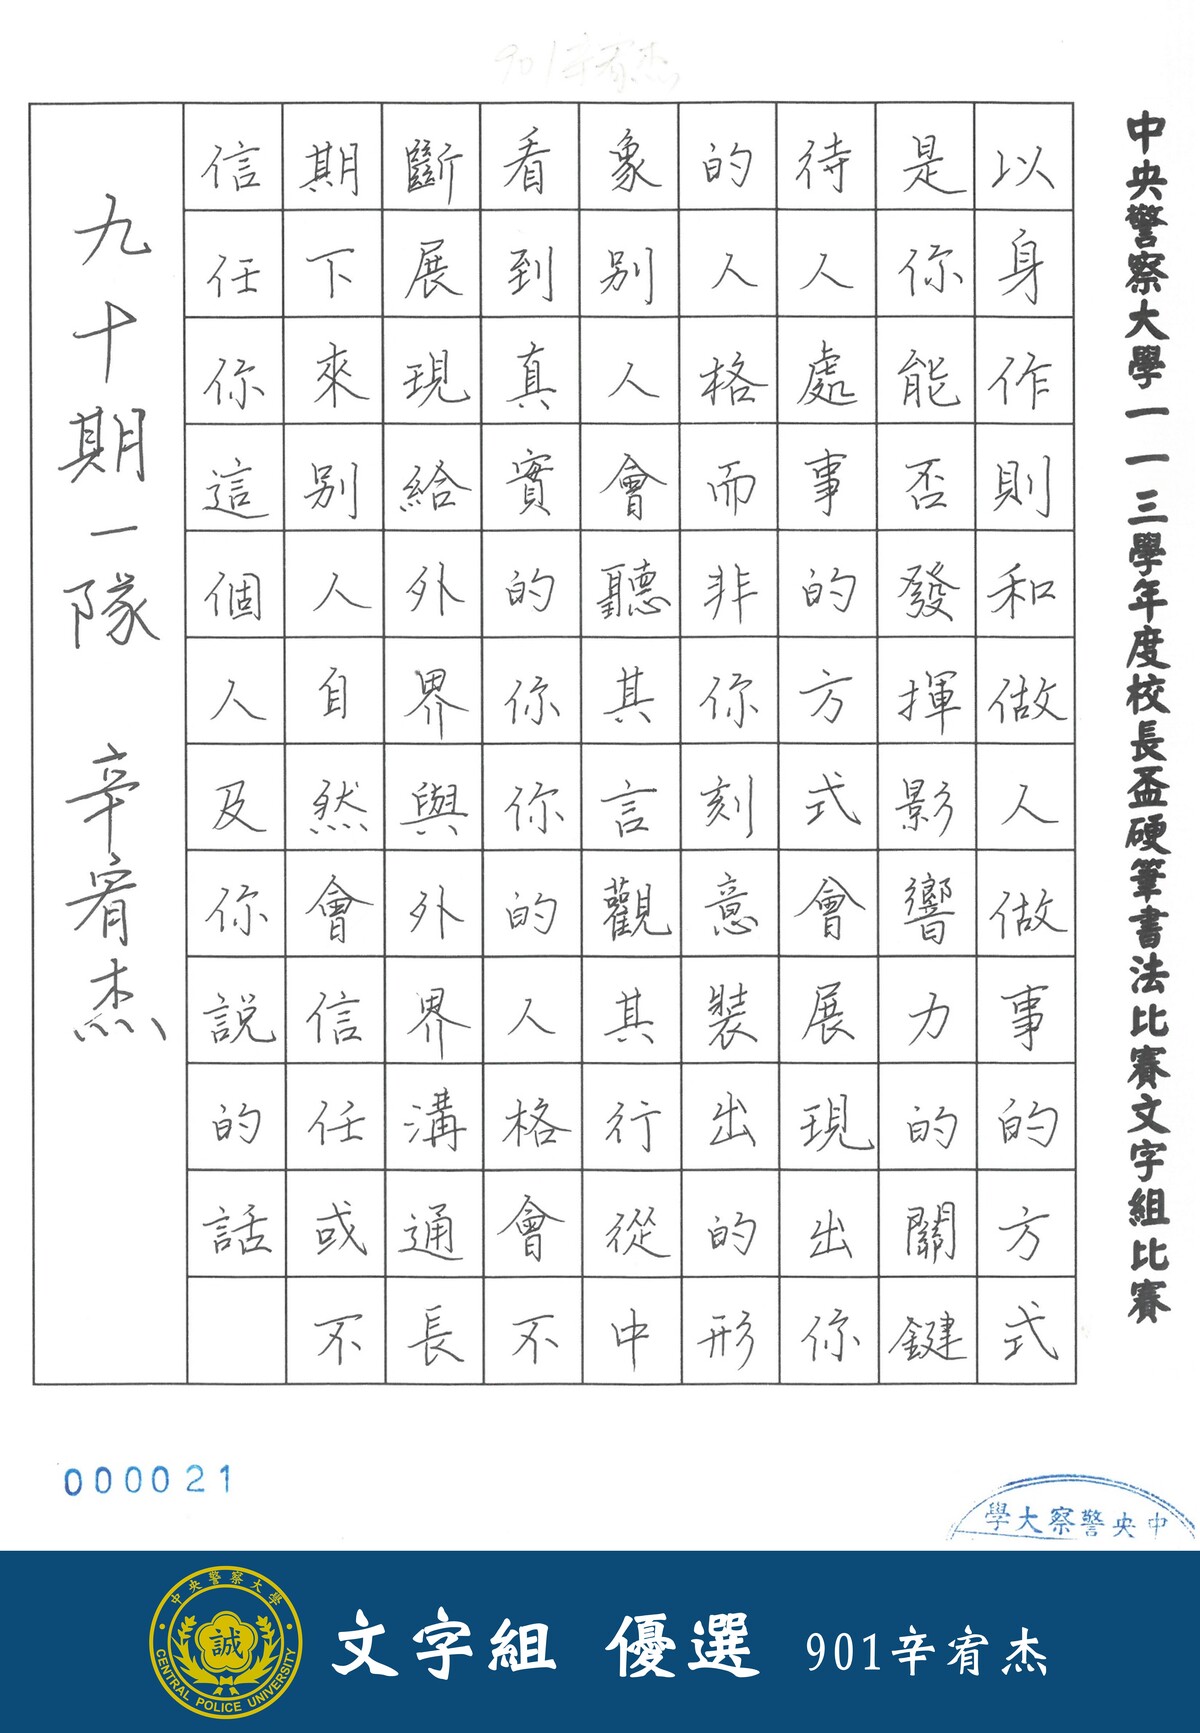 901辛宥杰
中央警察大學一一三學年度校長盃硬筆書法比賽文字組比賽
以身作則和做人做事的方式
是你能否發揮影響力的關鍵
待人處事的方式會展現出你
的人格而非你刻意裝出的形
象別人會聽其言觀其行從中
看到真實的你你的人格會不
斷展現給外界與外界溝通長
期下來別人自然會信任或不
信任你這個人及你說的話
九十期一隊 辛宥杰
000021
中央警察大學
中央警察大學
誠
CENTRAL POLICE UNIVERSITY
文字組 優選 901辛宥杰